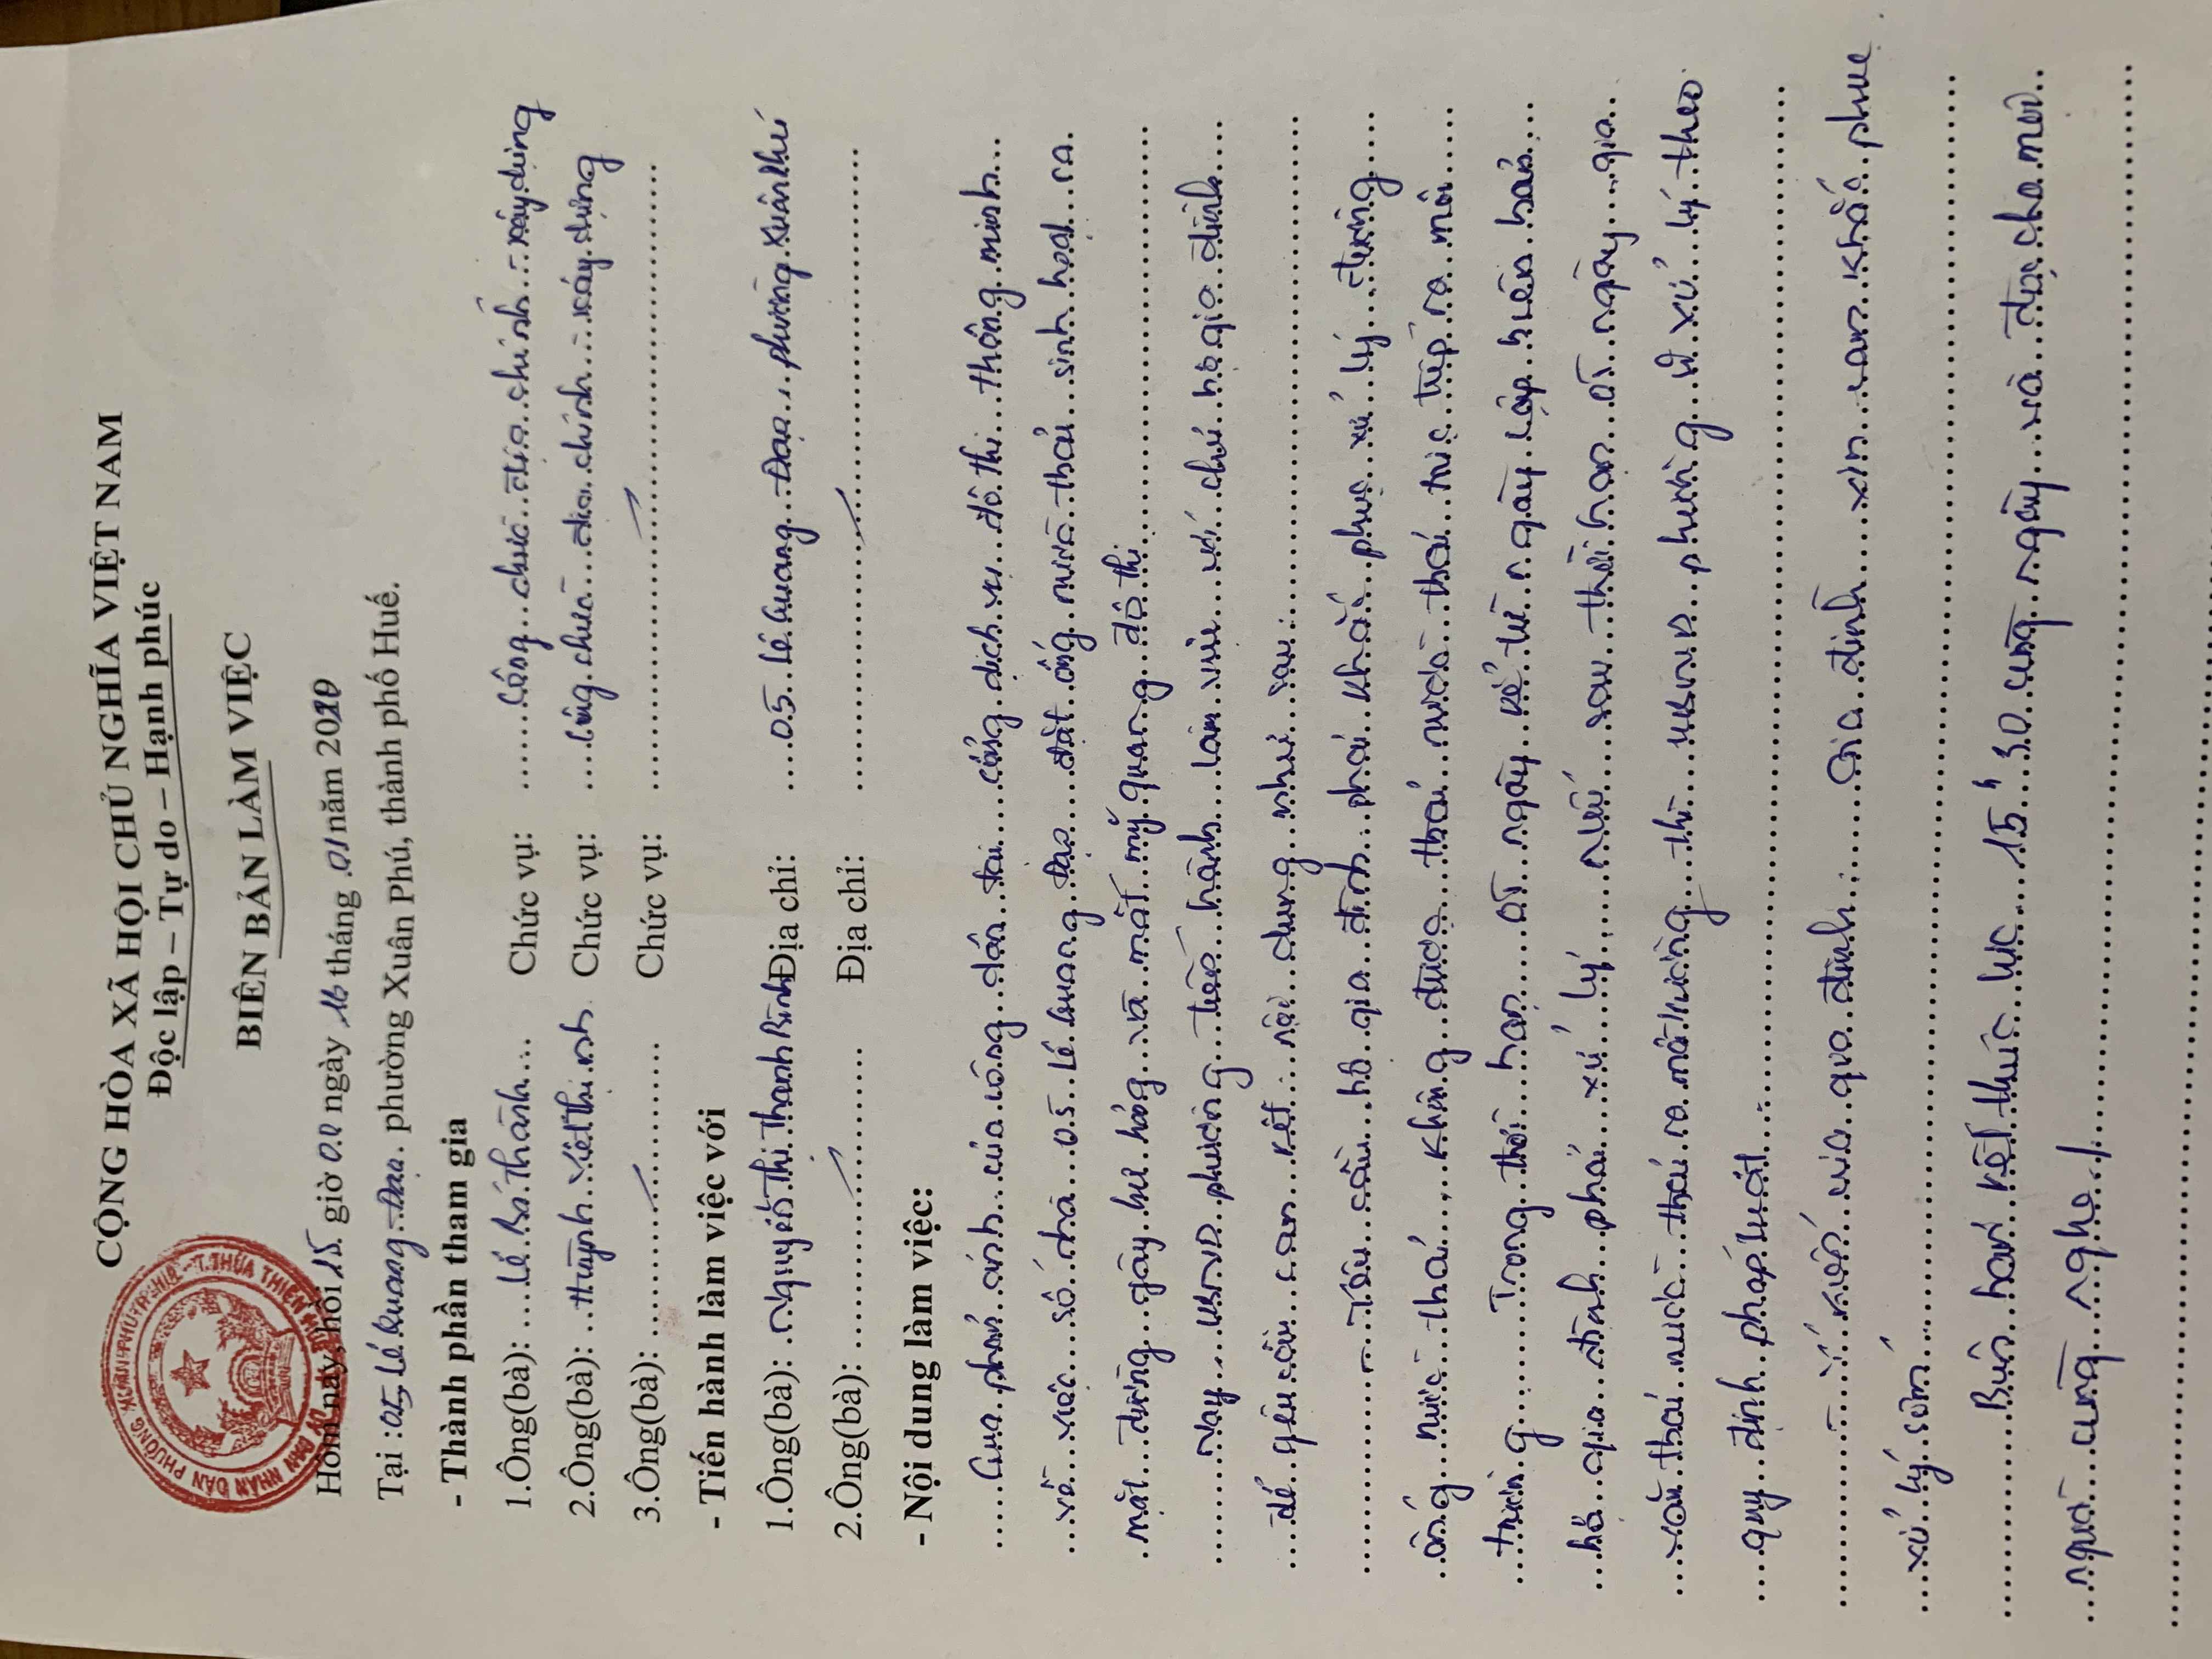 CỘNG HÒA XÃ HỘI CHỦ NGHĨA VIỆT NAM
Độc lập – Tự do – Hạnh phúc
BIÊN BẢN LÀM VIỆC
Hôm nay, hồi 15 giờ 00 ngày 16 tháng 01 năm 2020
Tại : 05 Lê Quang Đạo phường Xuân Phú, thành phố Huế.
- Thành phần tham gia
1.Ông(bà): Lê Bá Thành Chức vụ: Công chức địa chính - xây dựng
2.Ông(bà): Huỳnh Viết Thịnh Chức vụ: Công chức địa chính - xây dựng
3.Ông(bà): Chức vụ:
- Tiến hành làm việc với
1.Ông(bà): Nguyễn Thị Thanh Bình Địa chỉ: 05 Lê Quang Đạo, phường Xuân Phú
2.Ông(bà): Địa chỉ:
- Nội dung làm việc:
Qua phản ánh của công dân tại cổng dịch vụ đô thị thông minh
về việc số nhà 05 Lê Quang Đạo đặt ống nước thải sinh hoạt ra
mặt đường gây hư hỏng và mất mỹ quang đô thị
nay, UBND phường tiến hành làm việc với chủ hộ gia đình
để yêu cầu cam kết nội dung như sau:
- Yêu cầu hộ gia đình phải khắc phục xử lý đường
ống nước thải, không được thải nước thải trực tiếp ra môi
trường. Trong thời hạn 07 ngày kể từ ngày lập biên bản
hộ gia đình phải xử lý, nếu sau thời hạn 07 ngày gia
vẫn thải nước thải ra môi trường thì UBND phường sẽ xử lý theo
quy định pháp luật.
- Ý kiến của gia đình: Gia đình xin cam khắc phục
xử lý sớm
Biên bản kết thúc lúc 15h 30 cùng ngày và đọc cho mọi
người cùng nghe./.
THỪA THIÊN HUẾ
ỦY BAN NHÂN DÂN PHƯỜNG XUÂN PHÚ